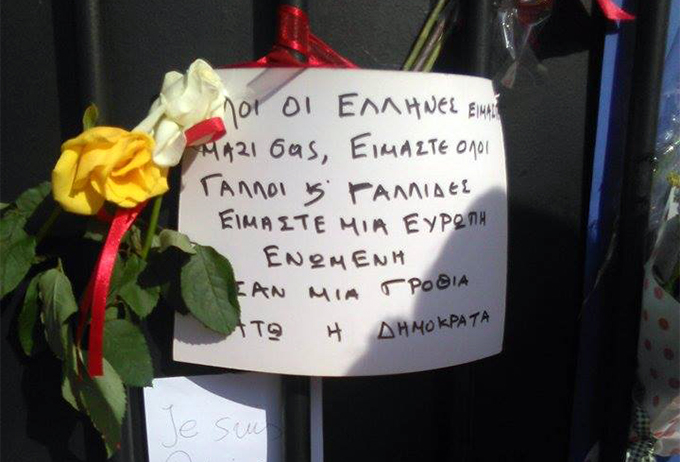 ΛΟΙ ΟΙ ΕΛΛΗΝΕΣ ΕΙΜΑΣΤ
ΜΑΖΙ σας, ΕΙΜΑΣΤΕ ΟΛΟΙ
ΓΑΛΛΟΙ & ΓΑΛΛΙΔΕΣ
ΕΙΜΑΣΤΕ ΜΙΑ ΕΥΡΩΠΗ
ΕΝΩΜΕΝΗ
ΣΑΝ ΜΙΑ ΓΡΟΘΙΑ
ΗΤΩ Η ΔΗΜΟΚΡΑΤΑ
Je suis